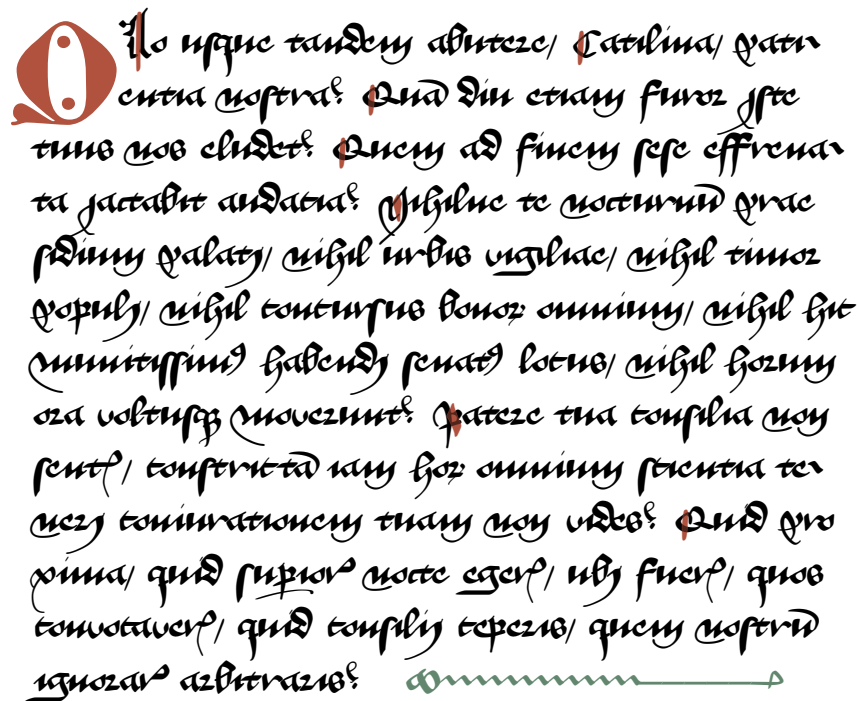 QUo usque tandem abutere/ Catilina/ pati-
entia nostra? Quā diu etiam furor iste
tuus nos eludet? Quem ad finem sese effrena-
ta jactabit audacia? Nihilne te nocturnū prae
sidium palatij/ nihil urbis vigiliae/ nihil timor
populj/ nihil concursus bonoꝝ omnium/ nihil hic
munitissimꝰ habendj senatꝰ locus/ nihil horum
ora voltusqꝫ moverunt? Patere tua consilia non
sentꝭ/ constrictā iam hoꝝ omnium scientia te-
nerj coniurationem tuam non vides? Quid pro
xima/ quid suꝑior̉ nocte egerꝭ/ ubj fuerꝭ/ quos
convocaverꝭ/ quid consilij ceperis/ quem nostrū
ignorar̉ arbitraris?